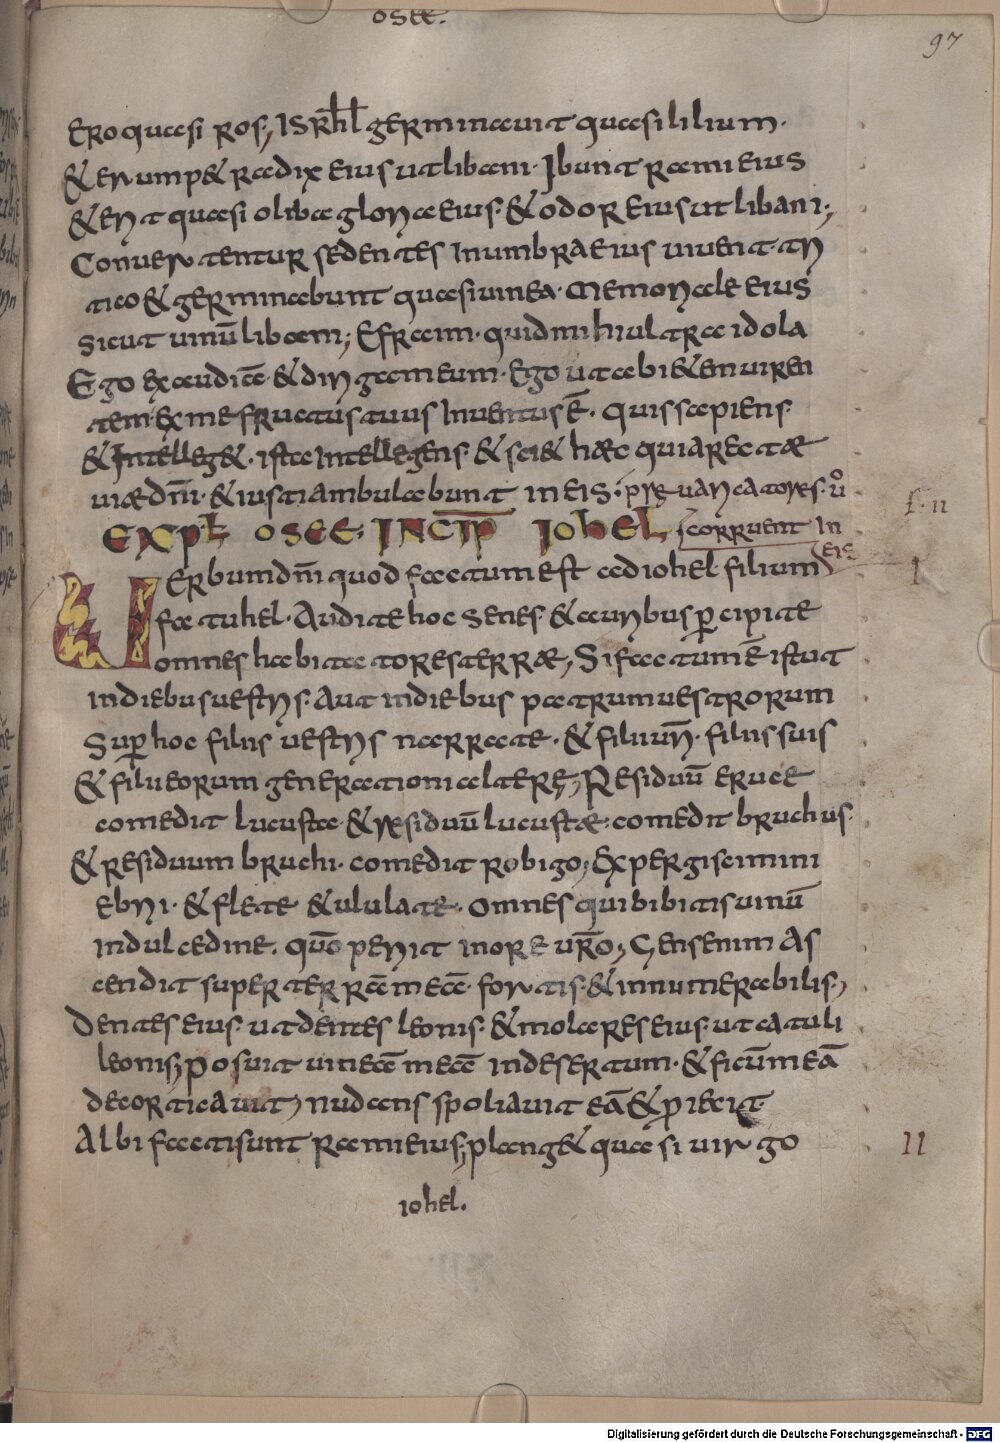 osee.
97
Ero quasi ros, isrhl germinauit quasi lilium.
& erump& radix eius ut libani. Ibunt rami eius
& erit quasi oliba gloria eius. & odor eius ut libani;
Conuertentur sedentes in umbra eius uiuent tri
tico & germinabunt quasi uinea. Memoriale eius
sicut uinū libani; Efraim. quid mihi ultra idola
Ego exaudiā. & dirigam eum. Ego ut abi&em uiren
tem. Ex me fructus tuus inuentus ē. Quis sapiens
& intelleg& . ista intellegens. & sci& hæc quia rectæ
uiæ dn̄i. & iusti ambulabunt in eis. preuaricatores. ū
EXPL OSEE. INCIP IOHEL corruent in
eis
f. 11
Uerbum dn̄i quod factum est ad iohel filium
I
fatuhel. Audite hoc senes. & auribus p̄cipite
omnes habitatores terræ, Si factum ē istut
in diebus uestris. Aut in diebus patrum uestrorum
Sup̄ hoc filiis uestris narrate. & filii ur̄i. filiis suis
& filii eorum generationi alteræ, Residuū erucæ
comedit lucusta. & residuū lucustæ. comedit bruchus.
& residuum bruchi. comedit robigo; Expergiscimini
ebrii. & flete & ululate. omnes qui bibitis uinū
in dulcedine. quō periit in ore ur̄o; Gens enim as
cendit super terrā meā. fortis. & innumerabilis,
Dentes eius. ut dentes leonis. & molares eius. ut catuli
leonis; posuit uineā meā in desertum. & ficūm eā
decorticauit, nudans spoliauit eā & p̄iecit.
Albi facti sunt rami eius; plang& quasi uirgo
II
iohel.
Digitalisierung gefördert durch die Deutsche Forschungsgemeinschaft - DFG